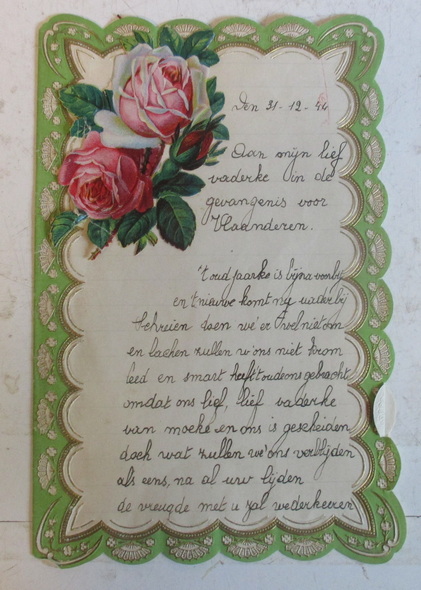 Den 31-12-44
Aan mijn lief
vaderke in de
gevangenis voor
Vlaanderen.
't oud jaarke is bijna voorbij
en 't nieuwe komt nu nader bij
Schreien doen we er niet om
en lachen zullen w'ons niet krom
leed en smart heeft 't oude ons gebracht
omdat ons lief, lief vaderke
van moeke en ons is gescheiden
doch wat zullen we ons verblijden
als eens, na al uw lijden
de vreugde met u zal wederkeeren